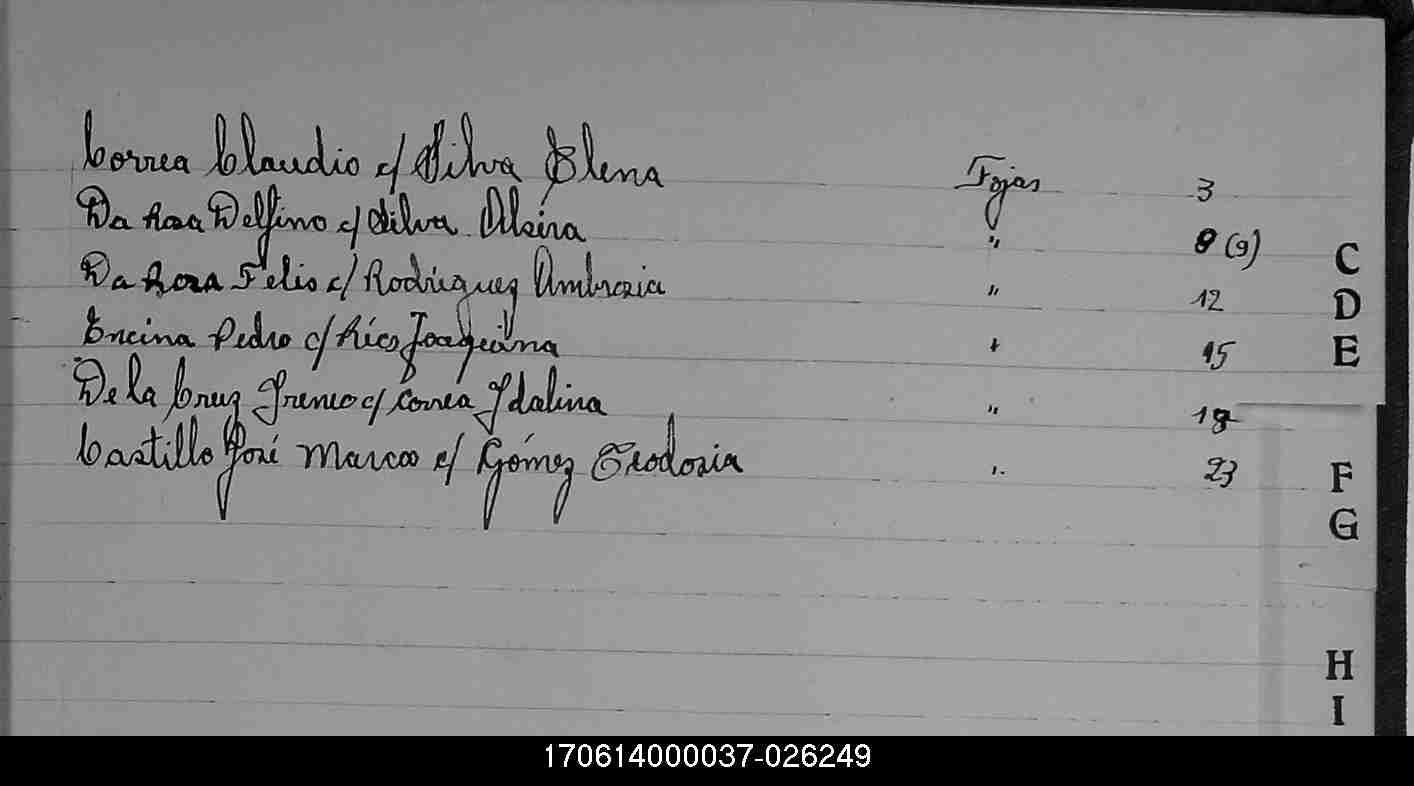 Correa Claudio c/ Silva Elena Fojas 3
Da Rosa Delfino c/ Silva Alcira " 8 (9)
Da Rosa Felis c/ Rodriguez Ambrosia " 12
Encina Pedro c/ Rios Joaquina " 15
De la Cruz Ireneo c/ Correa Idalina "
Castillo José Marcos c/ Gómez Teodosia " 23
C
D
E
F
G
H
I
170614000037-026249